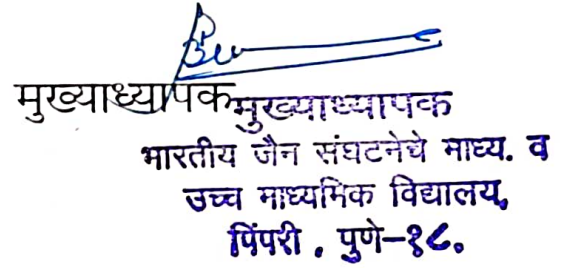 मुख्याध्यापक
मुख्याध्यापक
भारतीय जैन संघटनेचे माध्य. व
उच्च माध्यमिक विद्यालय,
पिंपरी , पुणे–१८.